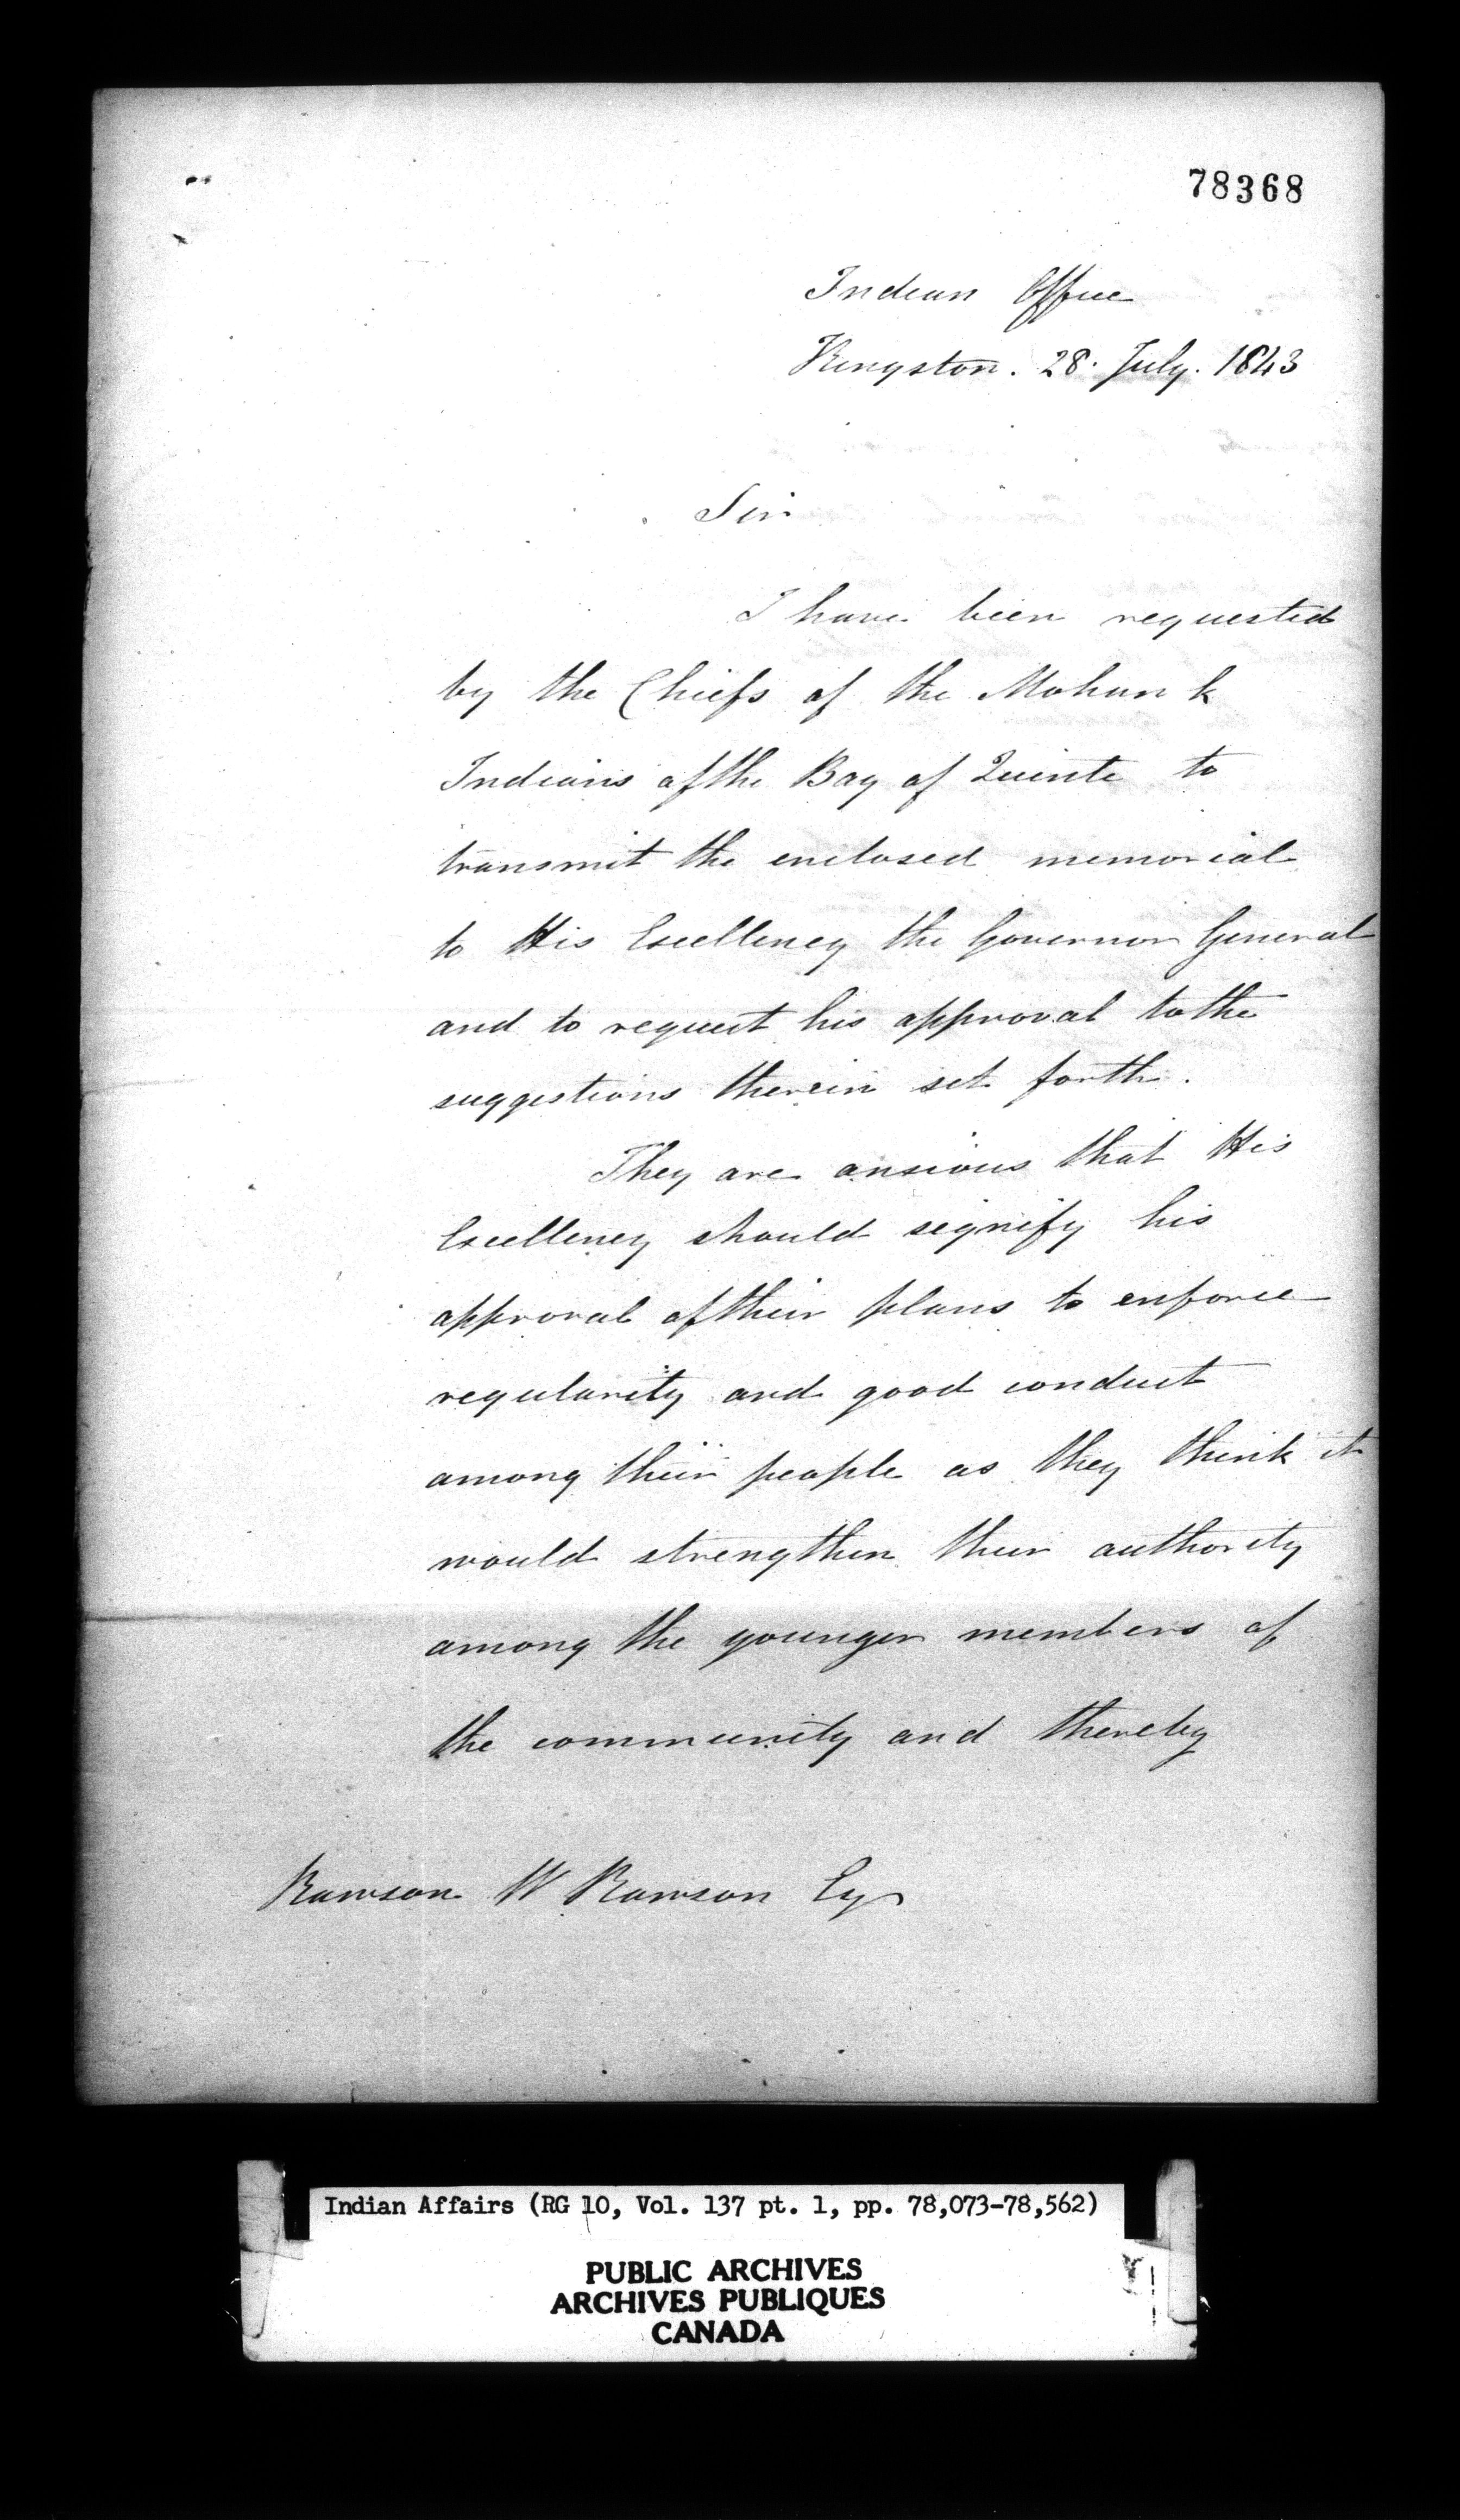 78368
Indian Office
Kingston. 28. July. 1843
Sir
I have been requested
by the Chiefs of the Mohawk
Indians of the Bay of Quinte to
transmit the enclosed memorial
to His Excellency the Governor General
and to request his approval to the
suggestions therein set forth.
They are anxious that His
Excellency should signify his
approval of their plans to enforce
regularity and good conduct
among their people as they think it
would strengthen their authority
among the younger members of
the community and thereby
Rawson W Rawson Esqr
Indian Affairs (RG 10, Vol. 137 pt. 1, pp. 78,073-78,562)
PUBLIC ARCHIVES
ARCHIVES PUBLIQUES
CANADA